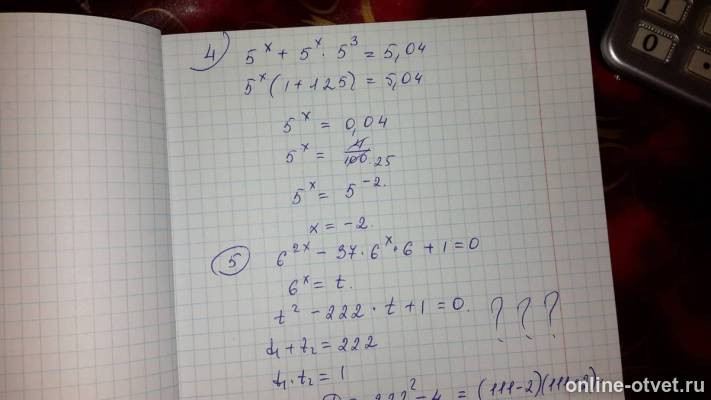 4) 5^x + 5^x · 5^3 = 5,04
5^x (1 + 125) = 5,04
5^x = 0,04
5^x = 4/100 25
5^x = 5^-2.
x = -2.
5 6^2x - 37 · 6^x · 6 + 1 = 0
6^x = t.
t^2 - 222 · t + 1 = 0. ? ? ?
t1 + t2 = 222
t1 · t2 = 1
= 222^2 - 4 = (111-2)(111+2)
1
0
online-otvet.ru